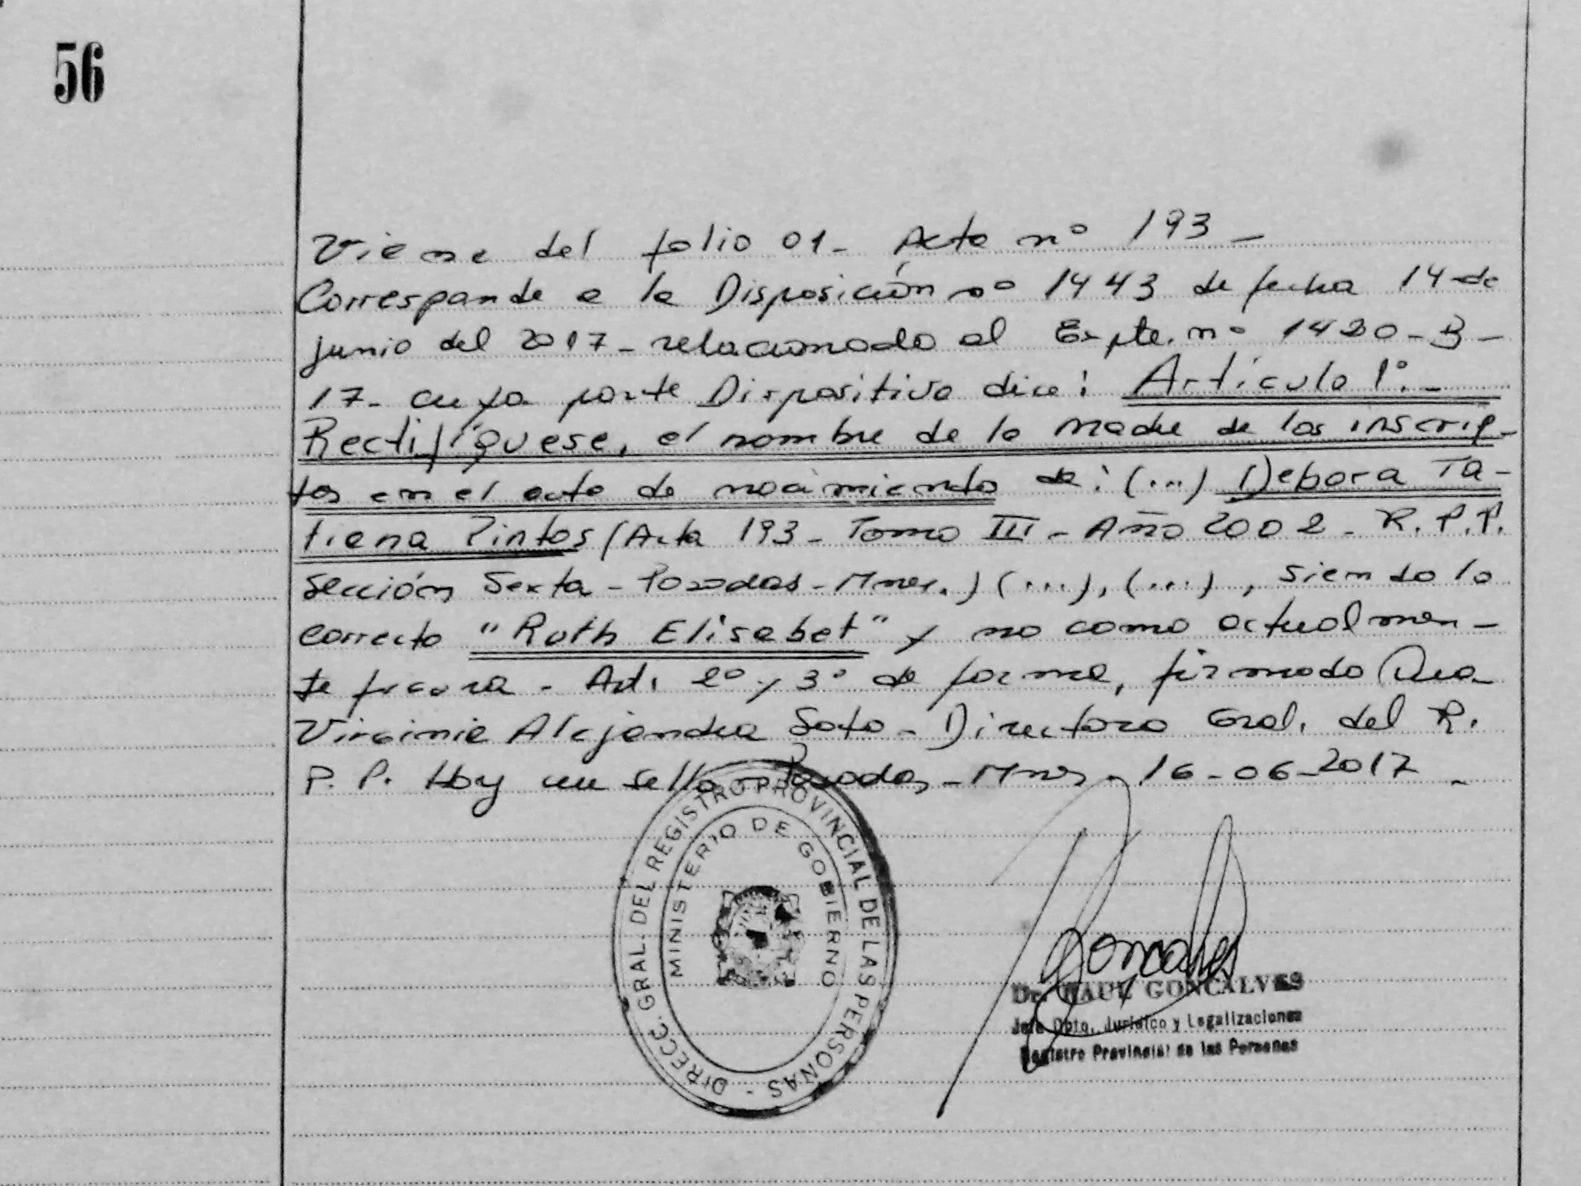 56
Viene del folio 01- Acta nº 193-
Corresponde a la Disposición nº 1443 de fecha 14 de
junio del 2017- relacionado al Expte. nº 1420-B-
17- cuya parte Dispositiva dice: Artículo 1º.-
Rectifíquese, el nombre de la madre de los inscrip-
tos en el acta de nacimiento de: (...) Debora Ta-
tiana Pintos (Acta 193- Tomo III- Año 2002- R.P.P.
Sección Sexta- Posadas- Mnes.) (...), (...), siendo lo
correcto "Ruth Elisabet" y no como actualmen-
te figura. Art. 2º y 3º de forma, firmado Dra.
Virginia Alejandra Soto- Directora Gral. del R.
P.P. Hay un sello- Posadas- Mnes- 16-06-2017-
DIRECC. GRAL. DEL REGISTRO PROVINCIAL DE LAS PERSONAS -
MINISTERIO DE GOBIERNO
Goncalves
Dr. RAUL GONCALVES
Jefe Dpto. Jurídico y Legalizaciones
Registro Provincial de las Personas